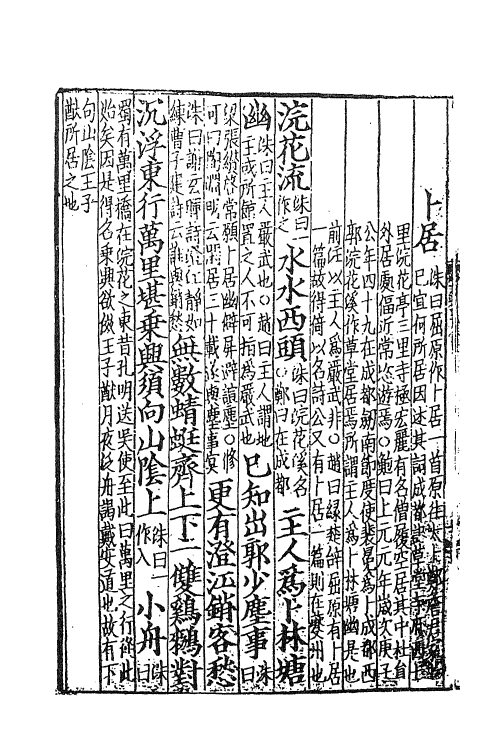 卜居
洙曰屈原作卜居一首原往太卜
已宜何所居因述其詞成都記草堂寺府西
里浣花亭三里寺極宏麗有名僧履空居其中杜自
外居處偪近常恣遊焉〇鮑曰上元元年歲次庚子
公年四十九在成都劍南節度使裴冕為卜成都西
郭浣花溪作草堂居焉所謂主人為卜林塘幽是也
前注以主人為嚴武非〇趙曰緣楚辭屈原有卜居
一篇故得倚以名詩公又有卜居一篇則在夔州也
浣花流洙曰一作之水水西頭洙曰浣花溪名〇鄭曰在成都主人為卜林塘
幽洙曰主人嚴武也〇趙曰主人謂地主或所館置之人不可指為嚴武也已知出郭少塵事洙曰
梁張纘啓常願卜居幽僻屏避諠塵〇修可曰陶淵明云閑居三十載遂與塵事冥更有澄江銷客愁
洙曰謝玄暉詩澄江靜如練曹子建詩云誰與銷愁無數蜻蜓齊上下一雙鸂鶒對
沉浮東行萬里堪乘興須向山陰上洙曰一作入小舟洙曰
蜀有萬里橋在浣花之東昔孔明送吳使至此曰萬里之行從此
始矣因是得名乘興欲傚王子猷月夜泛舟訪戴安道也故有下
句山陰王子
猷所居之地